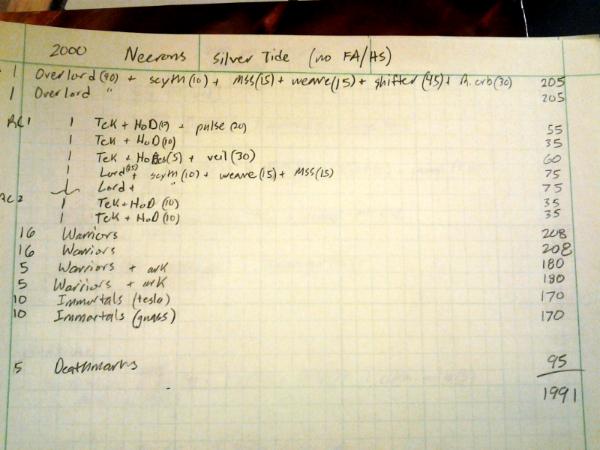 2000 Necrons | Silver Tide (no FA/HS)
1 Overlord (90) + scyth (10) + MSS (15) + weave (15) + shifter (45) + R. orb (30) 205
1 Overlord " 205
RC1 1 Tek + HoD (10) + pulse (20) 55
1 Tek + HoD (10) 35
1 Tek + (5) + veil (30) 60
1 Lord (35) + scyth (10) + weave (15) + MSS (15) 75
Lord + " 75
RC2 1 Tek + HoD (10) 35
1 Tek + HoD (10) 35
16 Warriors 208
16 Warriors 208
5 Warriors + ark 180
5 Warriors + ark 180
10 Immortals (tesla) 170
10 Immortals (gauss) 170
5 Deathmarks 95
1991